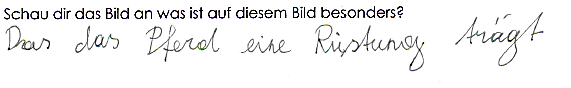 Schau dir das Bild an was ist auf diesem Bild besonders?
Das das Pferd eine Rüstung trägt